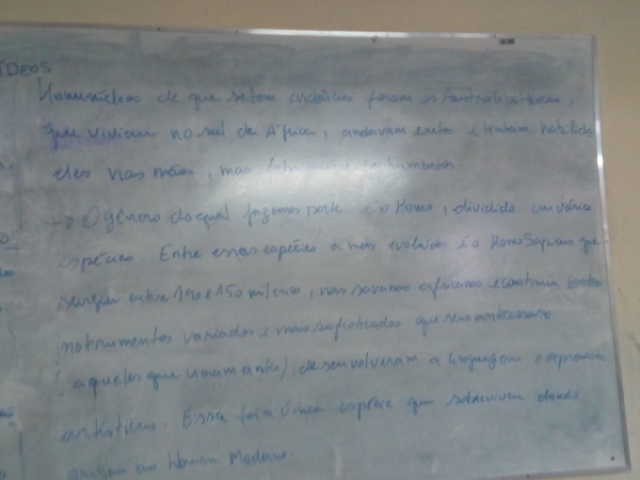 ÍDEOS
Hominídeos de que se tem evidência foram os Australopitecus,
que viviam no sul da África, andavam eretos e tinham habilida
des nas mãos, mas instrumentos.
→ O gênero do qual fazemos parte é o Homo, dividido em várias
espécies. Entre essas espécies a mais evoluída é o Homo Sapiens que
surgiu entre 190 e 150 mil anos, nas savanas africanas e construiu
instrumentos variados e mais sofisticados que seus antecessores
(aqueles que vieram antes), desenvolveram a linguagem e expressões
artísticas. Essa foi a única espécie que sobreviveu dando
origem ao Homem Moderno.